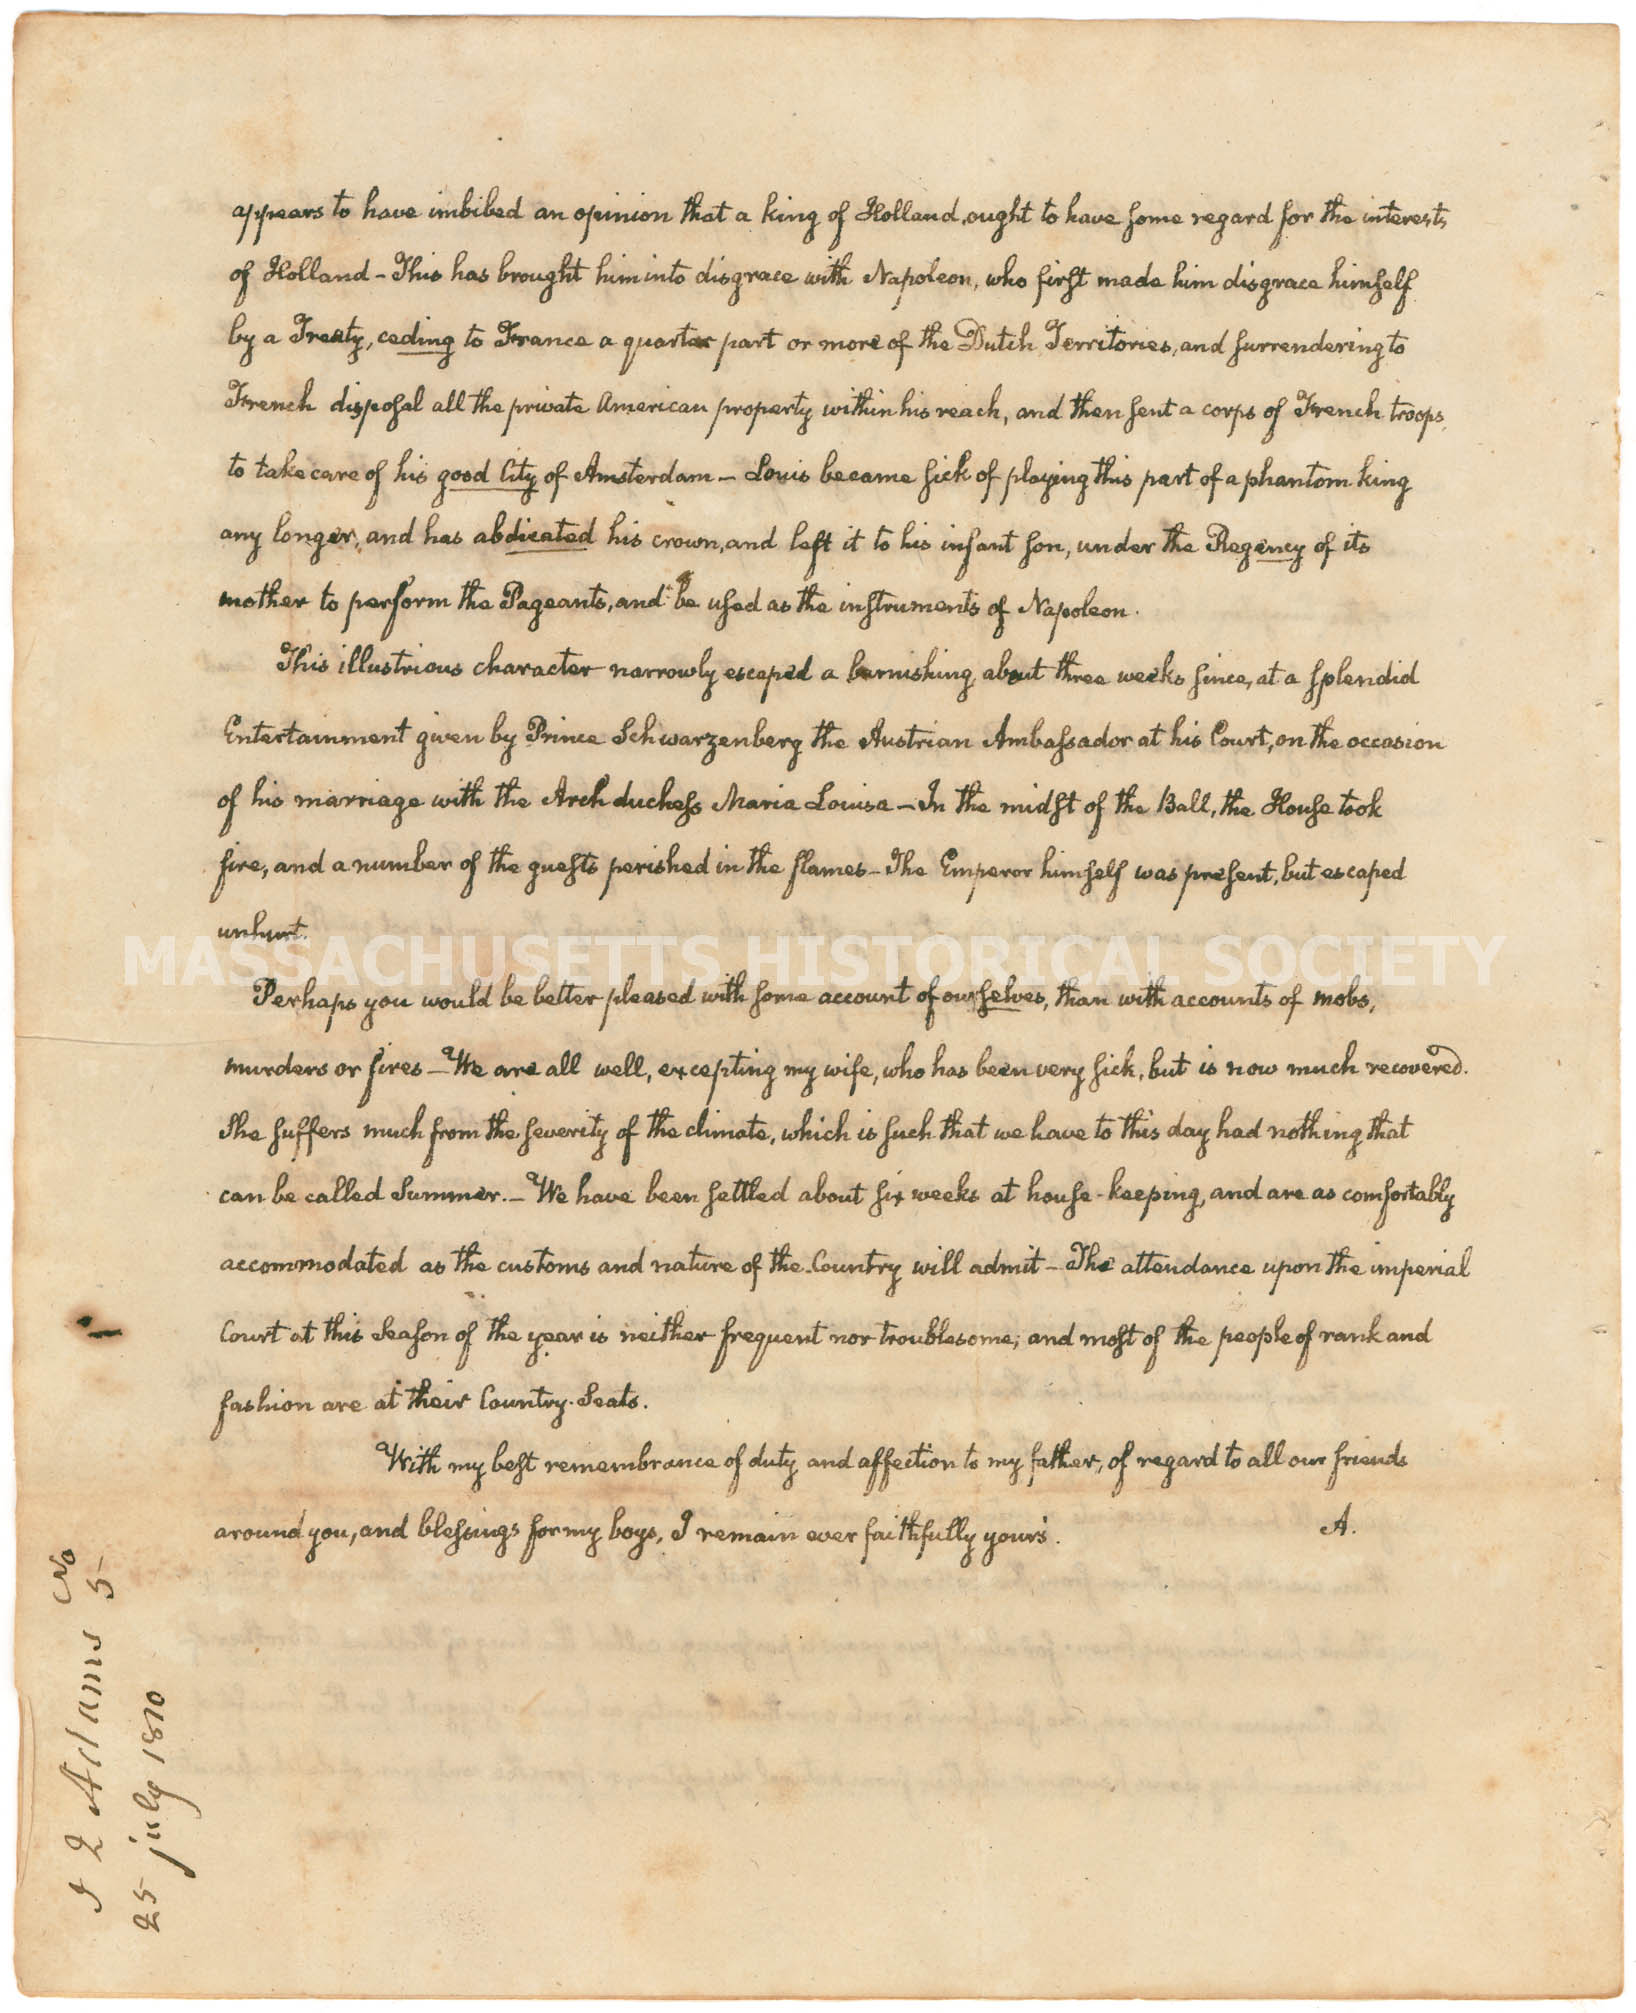 appears to have imbibed an opinion that a king of Holland, ought to have some regard for the interests
of Holland – This has brought him into disgrace with Napoleon, who first made him disgrace himself
by a Treaty, ceding to France a quarter part or more of the Dutch Territories, and surrendering to
French disposal all the private American property within his reach, and then sent a corps of French troops
to take care of his good City of Amsterdam – Louis became sick of playing this part of a phantom king
any longer, and has abdicated his crown, and left it to his infant son, under the Regency of its
mother to perform the Pageants, and be used as the instruments of Napoleon.
This illustrious character narrowly escaped a burnishing about three weeks since, at a splendid
Entertainment given by Prince Schwarzenberg the Austrian Ambassador at his Court, on the occasion
of his marriage with the Archduchess Maria Louisa – In the midst of the Ball, the House took
fire, and a number of the guests perished in the flames – The Emperor himself was present, but escaped
unhurt.
MASSACHUSETTS HISTORICAL SOCIETY
Perhaps you would be better pleased with some account of ourselves, than with accounts of mobs,
murders or fires – We are all well, excepting my wife, who has been very sick, but is now much recovered.
She suffers much from the severity of the climate, which is such that we have to this day had nothing that
can be called Summer. – We have been settled about six weeks at house-keeping, and are as comfortably
accommodated as the customs and nature of the Country will admit – The attendance upon the imperial
Court at this Season of the year is neither frequent nor troublesome; and most of the people of rank and
fashion are at their Country-Seats.
With my best remembrance of duty and affection to my father, of regard to all our friends
around you, and blessings for my boys, I remain ever faithfully your's.
A.
J Q Adams No 5
25 july 1810